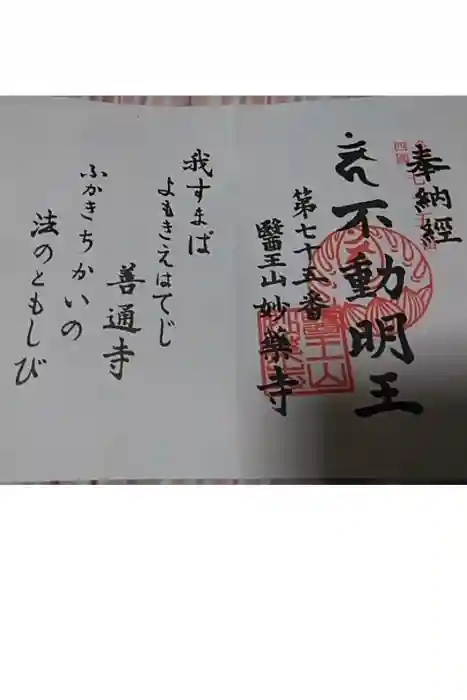 奉納経
不動明王
第七十五番
醫王山妙薬寺
我すまば
よもきえはてじ
善通寺
ふかきちかいの
法のともしび